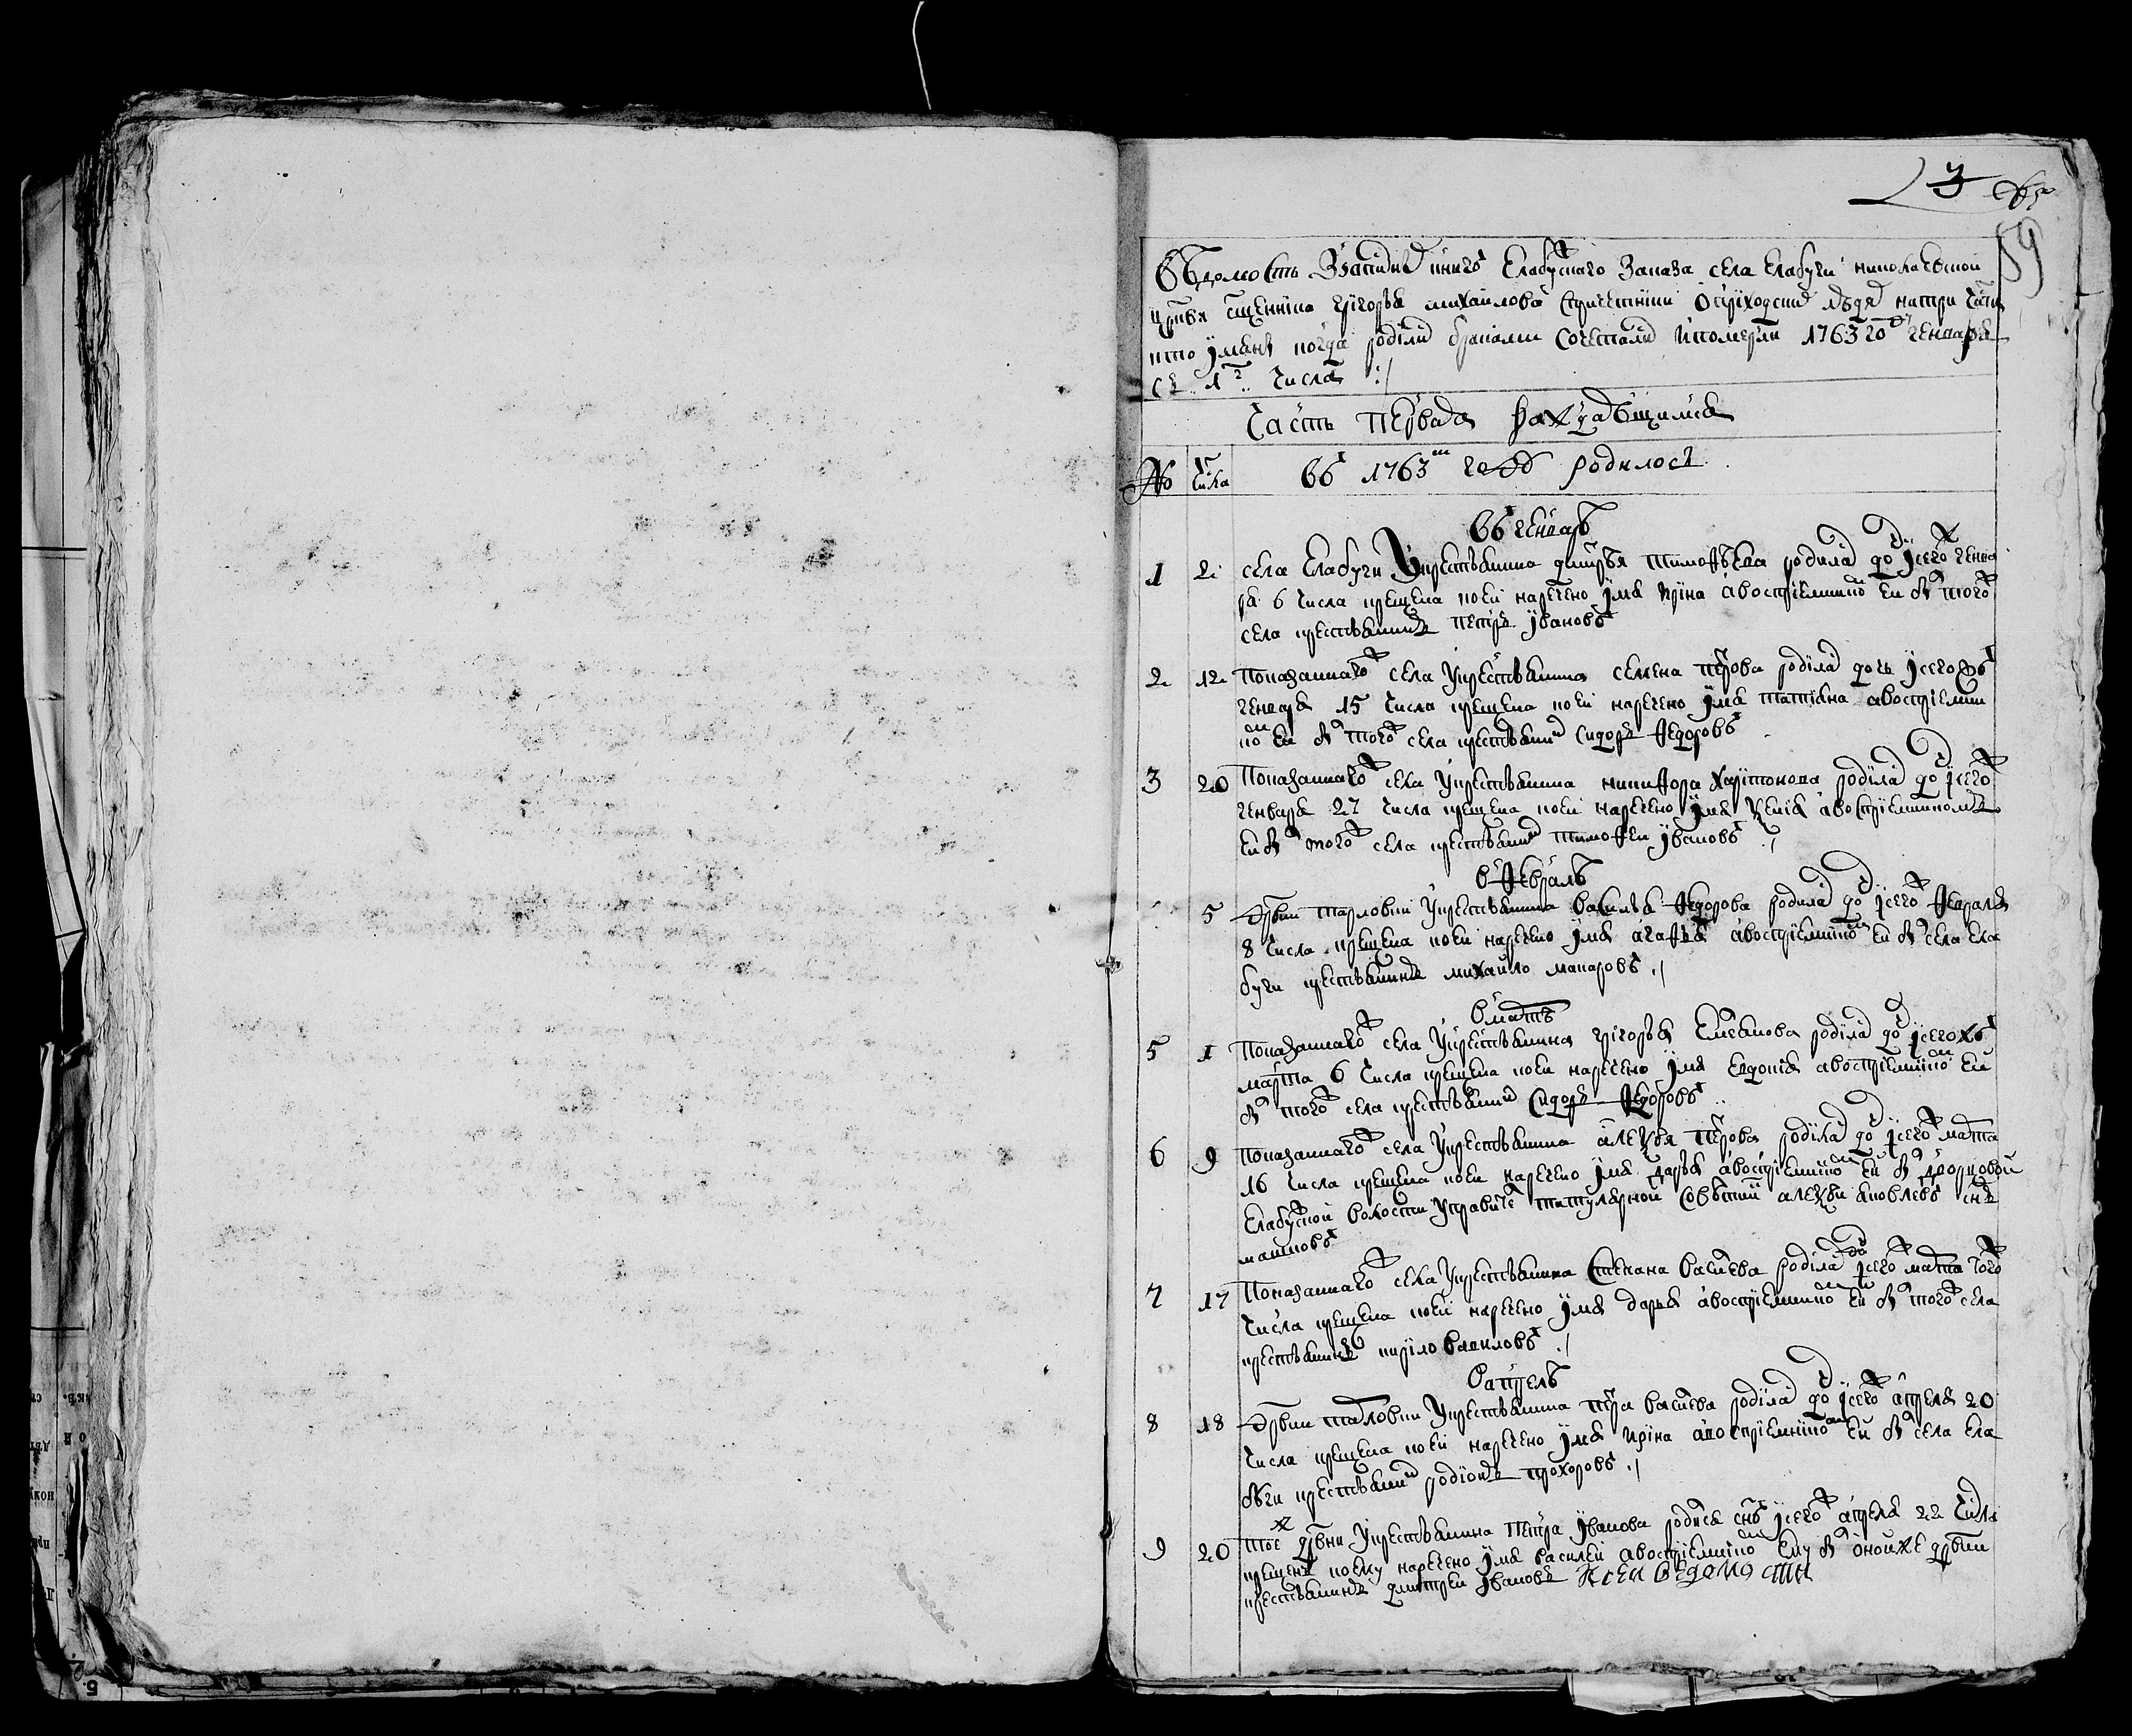 59
Ведомость Взятая изъ книгъ Елабускаго Заказа села Елабуги николаевской
церкви священника григорья михаилова спричетники оприходскихъ людехъ натри части
кто имянъ когда родили бракомъ сочетали ипомерли 1763 го генваря
съ 1 г числа :/
Часть первая Раждающимся
№ числа въ 1763 м годѣ родилось
въ генварѣ
1 2 села Елабуги У крестьянина дмитрея тимофѣева родилась дочь сего генва
ря 6 числа крещена коеи наречено имя ирина авосприемникомъ еи былъ того
села крестьянинъ петръ ивановъ
2 12 показаннаго села У крестьянина семена петрова родилась дочь сегожъ
генваря 15 числа крещена коеи наречено имя татияна авосприемни
комъ еи былъ того села крестьянинъ сидоръ федоровъ
3 20 показаннаго села У крестьянина никифора харитонова родилась дочь сего
генваря 27 числа крещена коеи наречено имя ксения авосприемникомъ
еи былъ того села крестьянинъ тимофеи ивановъ
в февралѣ
5 деревни тарловки У крестьянина василья федорова родилась дочь сего февраля
8 числа крещена коеи наречено имя агафья авосприемникомъ еи былъ села ела
буги крестьянинъ михаило макаровъ
в мартѣ
5 1 показаннаго села У крестьянина григорья емельянова родилась дочь сегожъ
марта 6 числа крещена коеи наречено имя евдокия авосприемникомъ еи
былъ того села крестьянинъ сидоръ федоровъ
6 9 показаннаго села У крестьянина алексея петрова родилась дочь сего марта
16 числа крещена коеи наречено имя дарья авосприемникомъ еи былъ дворцовой
Елабуской волости управитель титулярной совѣтникъ алексѣи яковлевъ сынъ
7 17 показаннаго села У крестьянина степана васильева родилась дочь сего марта того
числа крещена коеи наречено имя дарья авосприемникомъ еи былъ того села
крестьянинъ кирило вавиловъ
в апрелѣ
8 18 деревни тарловки У крестьянина петра васильева родилась дочь сего апреля 20
числа крещена коеи наречено имя ирина авосприемникомъ еи былъ села ела
буги крестьянинъ родионъ прохоровъ
9 20 тоеж деревни У крестьянина петра иванова родился сынъ сего апреля 22 числа
крещенъ коему наречено имя василеи авосприемникомъ ему былъ оноиже деревни
крестьянинъ дмитреи ивановъ Ксеи ведомости